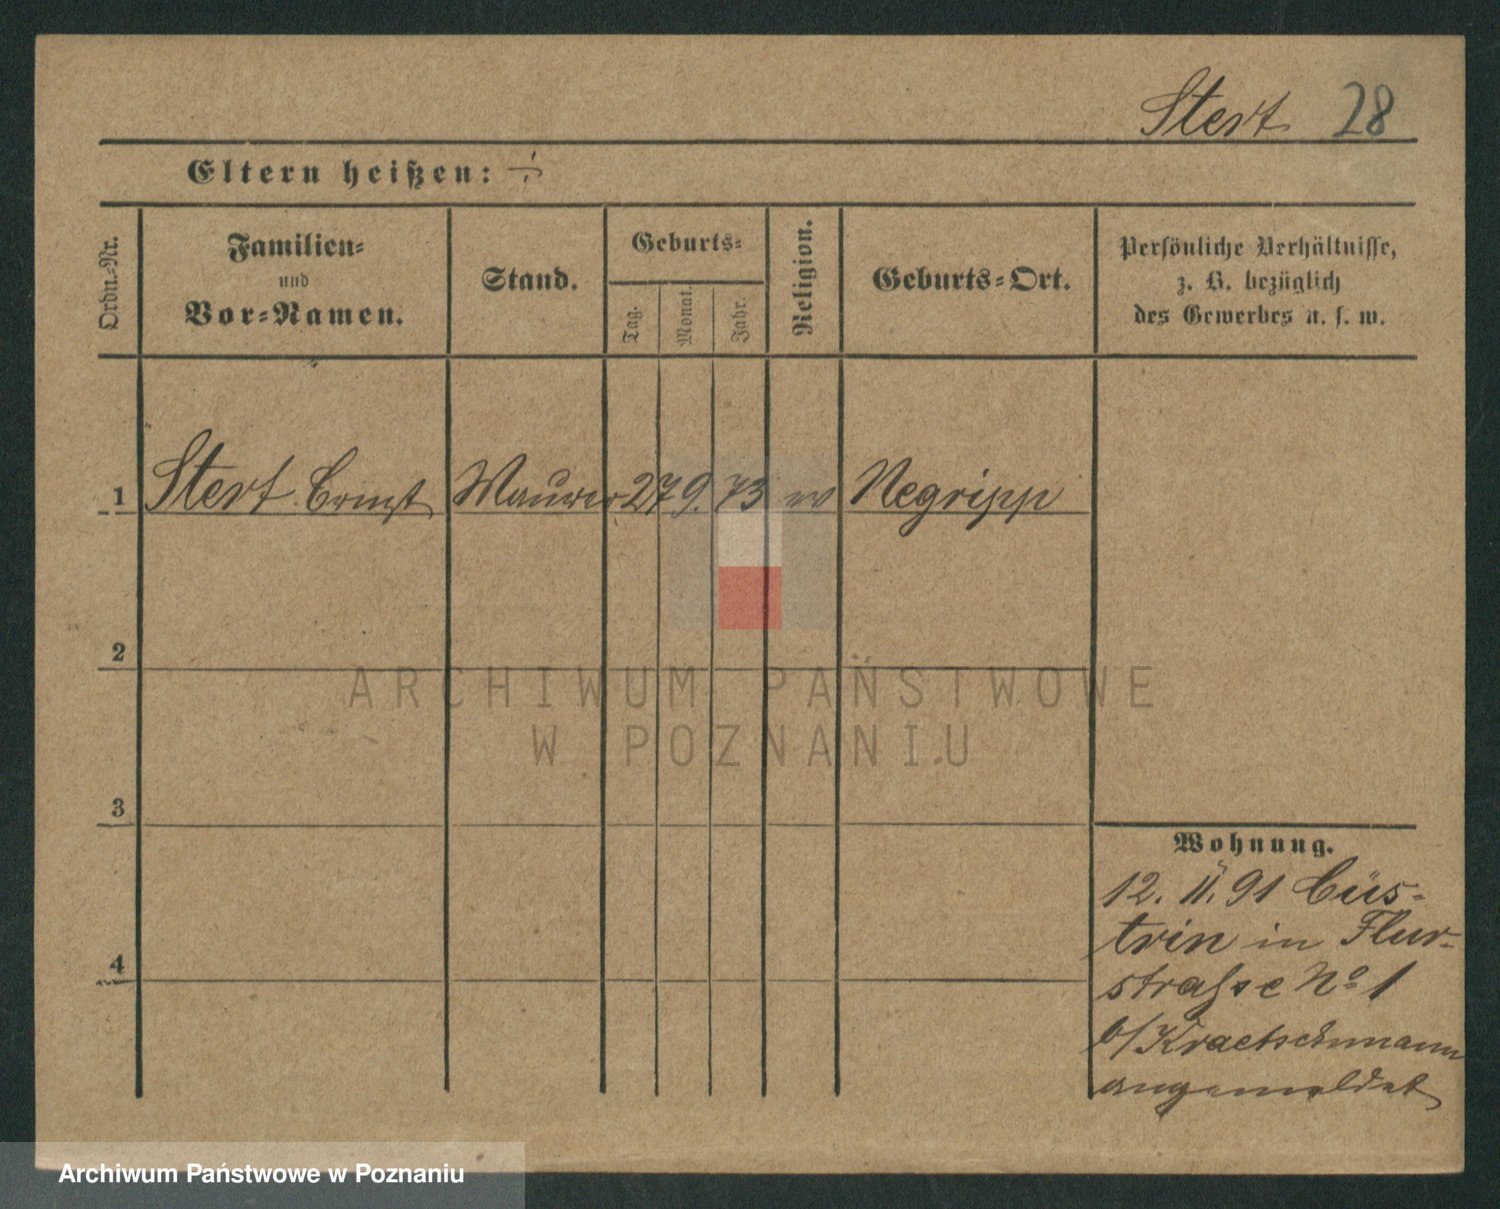 Stert 28
Eltern heißen: ./.
Ordn.-Nr.
Familien-
und
Vor-Namen.
Stand.
Geburts-
Tag.
Monat.
Jahr.
Religion.
Geburts-Ort.
Persönliche Verhältnisse,
z. B. bezüglich
des Gewerbes u. s. w.
1 Stert Ernst Maurer 27 9. 73 ev Negripp
2
ARCHIWUM PAŃSTWOWE
W POZNANIU
3
Wohnung.
12. 11. 91 Cüs-
trin in Flur-
4
strasse No 1
b/Kraetschmann
angemeldet
Archiwum Państwowe w Poznaniu